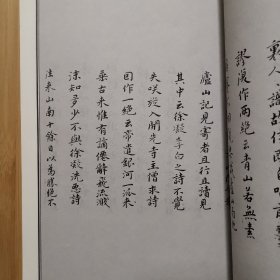 謬復作兩絶云青山若無素
廬山記見寄者且行且讀見
其中云徐凝李白之詩不覺
失咲旋入開先寺主僧求詩
因作一絶云帝遣銀河一派
垂古来惟有謫僊辭飛流濺
沫知多少不與徐凝洗惡詩
往来山南十餘日以為勝絶不